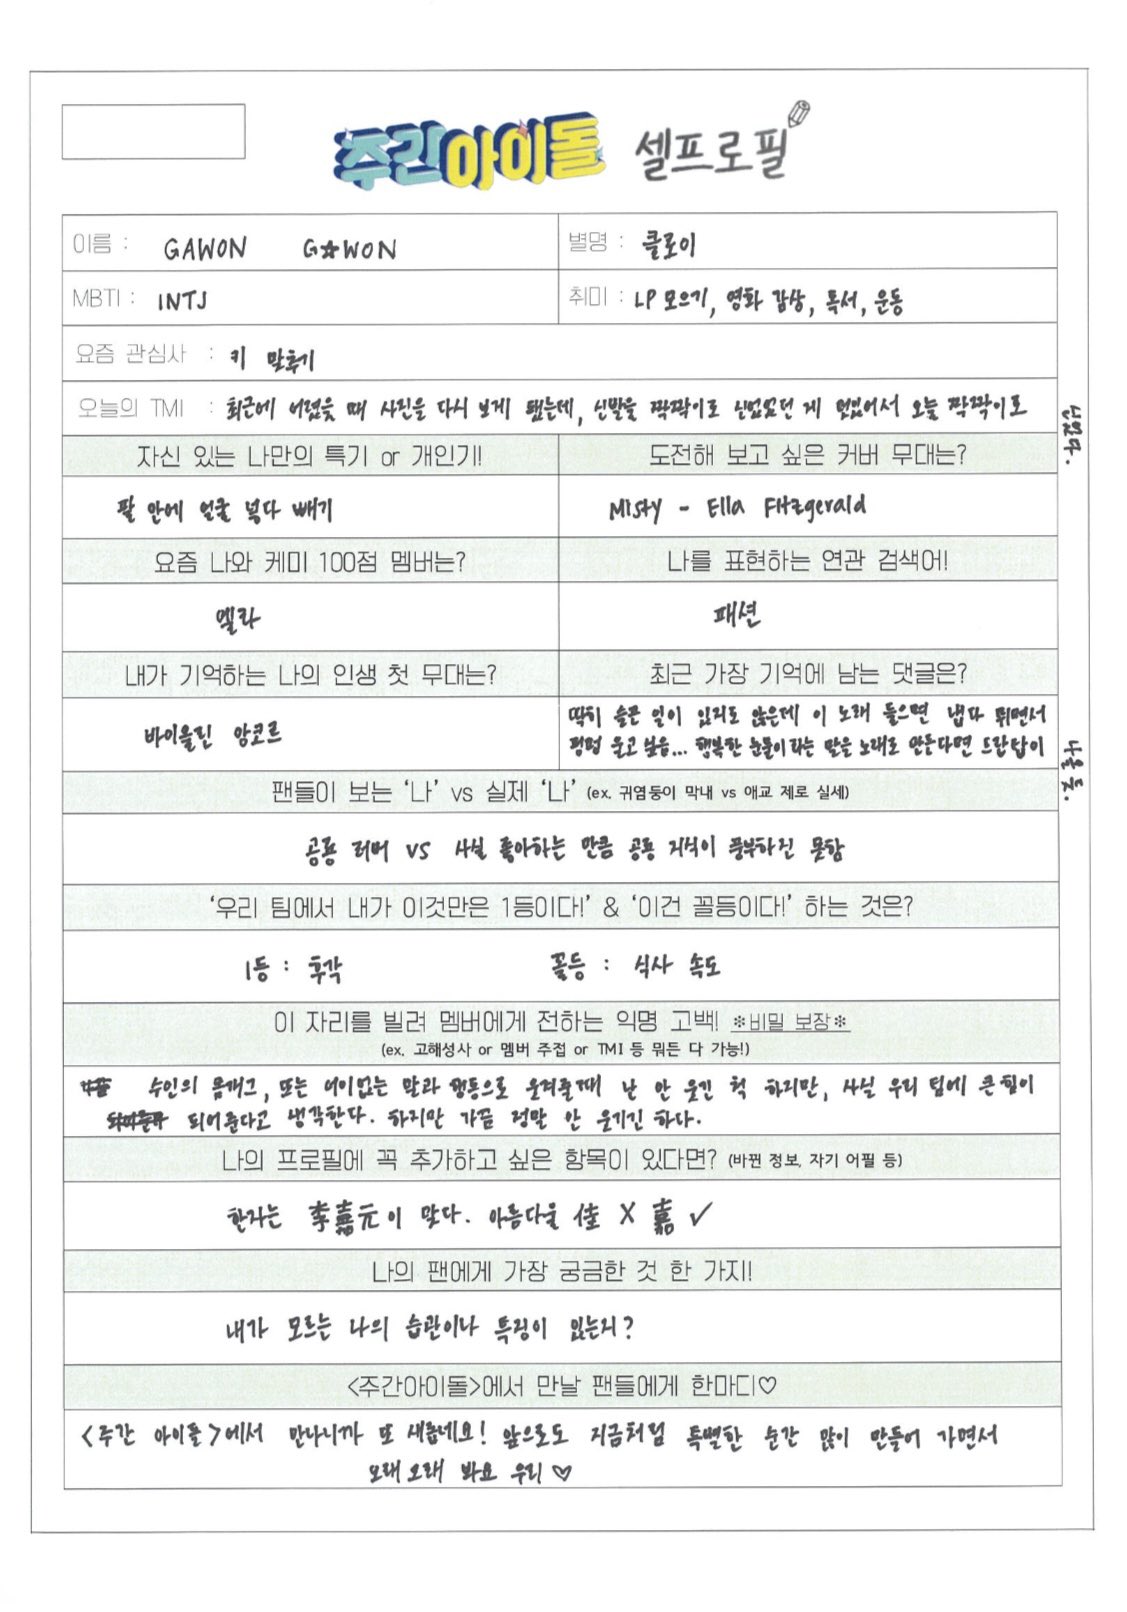 주간아이돌 셀프로필
이름 : GAWON G☆WON
별명 : 클로이
MBTI : INTJ
취미 : LP 모으기, 영화 감상, 독서, 운동
요즘 관심사 : 키 맞추기
오늘의 TMI : 최근에 어렸을 때 사진을 다시 보게 됐는데, 신발을 짝짝이로 신었었던 게 있어서 오늘 짝짝이로
신었다.
자신 있는 나만의 특기 or 개인기!
도전해 보고 싶은 커버 무대는?
팔 안에 얼굴 넣다 빼기
Misty - Ella Fitzgerald
요즘 나와 케미 100점 멤버는?
나를 표현하는 연관 검색어!
엘라
패션
내가 기억하는 나의 인생 첫 무대는?
최근 가장 기억에 남는 댓글은?
바이올린 앙코르
딱히 슬픈 일이 있지도 않은데 이 노래 들으면 냅다 뛰면서
펑펑 울고 싶음... 행복한 눈물이라는 말을 노래로 만든다면 드란답이
나올 듯.
팬들이 보는 '나' vs 실제 '나' (ex. 귀염둥이 막내 vs 애교 제로 실세)
공룡 러버 vs 사실 좋아하는 만큼 공룡 지식이 풍부하진 못함
'우리 팀에서 내가 이것만은 1등이다!' & '이건 꼴등이다!' 하는 것은?
1등 : 후각
꼴등 : 식사 속도
이 자리를 빌려 멤버에게 전하는 익명 고백! ※비밀 보장※
(ex. 고해성사 or 멤버 주접 or TMI 등 뭐든 다 가능!)
수인의 몸개그, 또는 어이없는 말과 행동으로 웃겨줄때 난 안 웃긴 척 하지만, 사실 우리 팀에 큰 힘이
되어준다고 생각한다. 하지만 가끔 정말 안 웃기긴 하다.
나의 프로필에 꼭 추가하고 싶은 항목이 있다면? (바뀐 정보, 자기 어필 등)
한자는 李嘉元이 맞다. 아름다울 佳 X 嘉 ✓
나의 팬에게 가장 궁금한 것 한 가지!
내가 모르는 나의 습관이나 특징이 있는지?
<주간아이돌>에서 만날 팬들에게 한마디♡
<주간 아이돌>에서 만나니까 또 새롭네요! 앞으로도 지금처럼 특별한 순간 많이 만들어 가면서
오래오래 봐요 우리 ♡